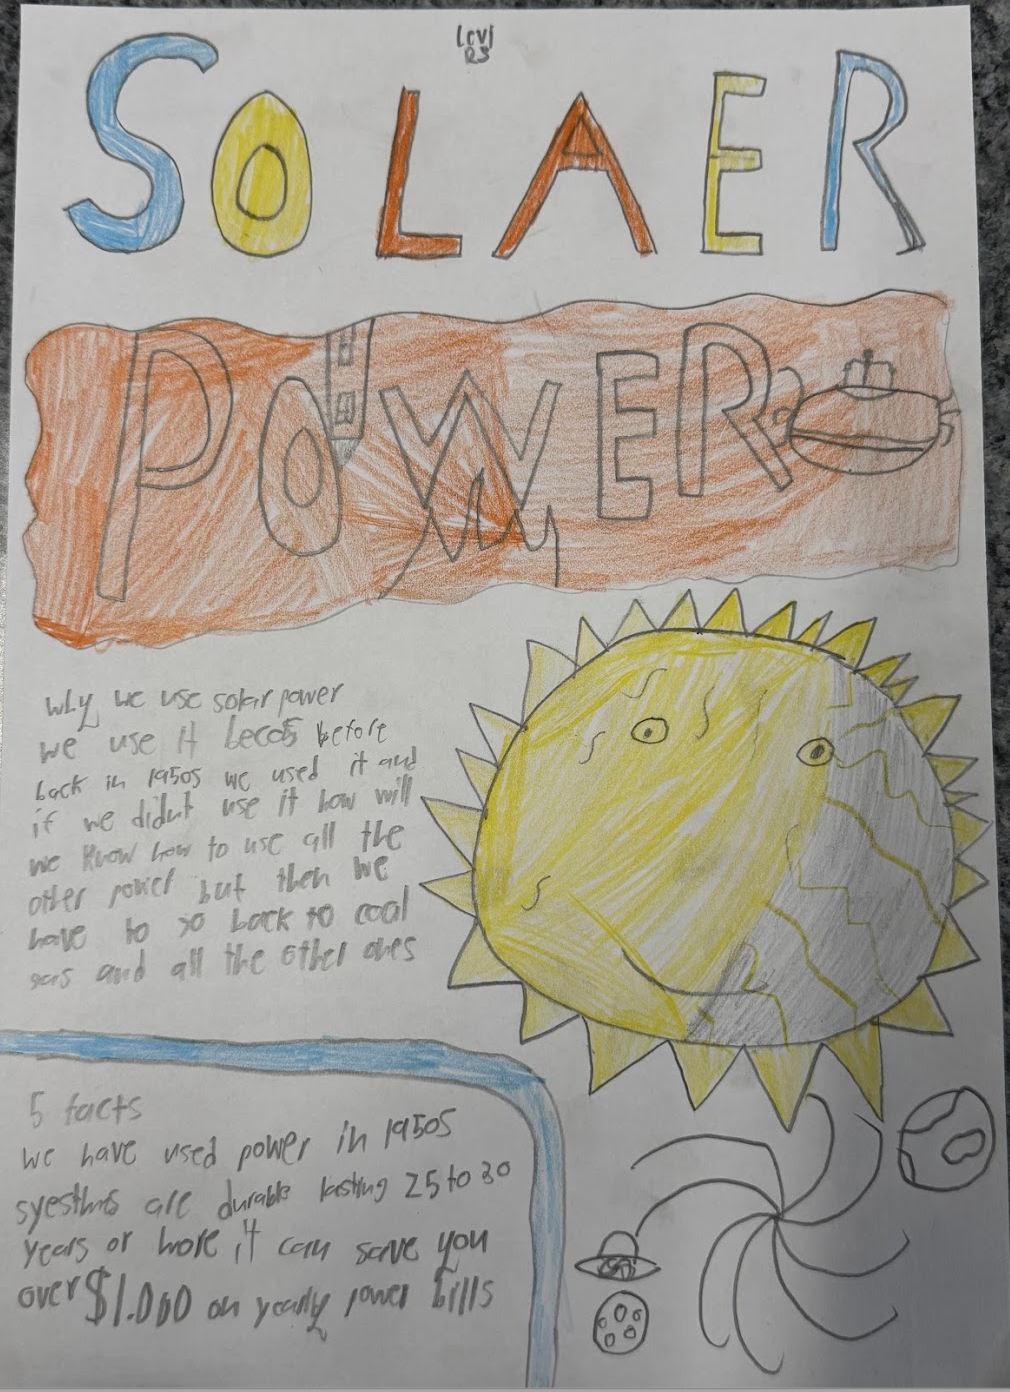 Levi
R3
SOLAER
POWER
why we use solar power
we use it becos before
back in 1950s we used it and
if we didnt use it how will
we know how to use all the
other power but then we
have to go back to coal
gas and all the other ones
5 facts
we have used power in 1950s
are durable lasting 25 to 30
years or more it can save you
over $1.000 on yearly power bills